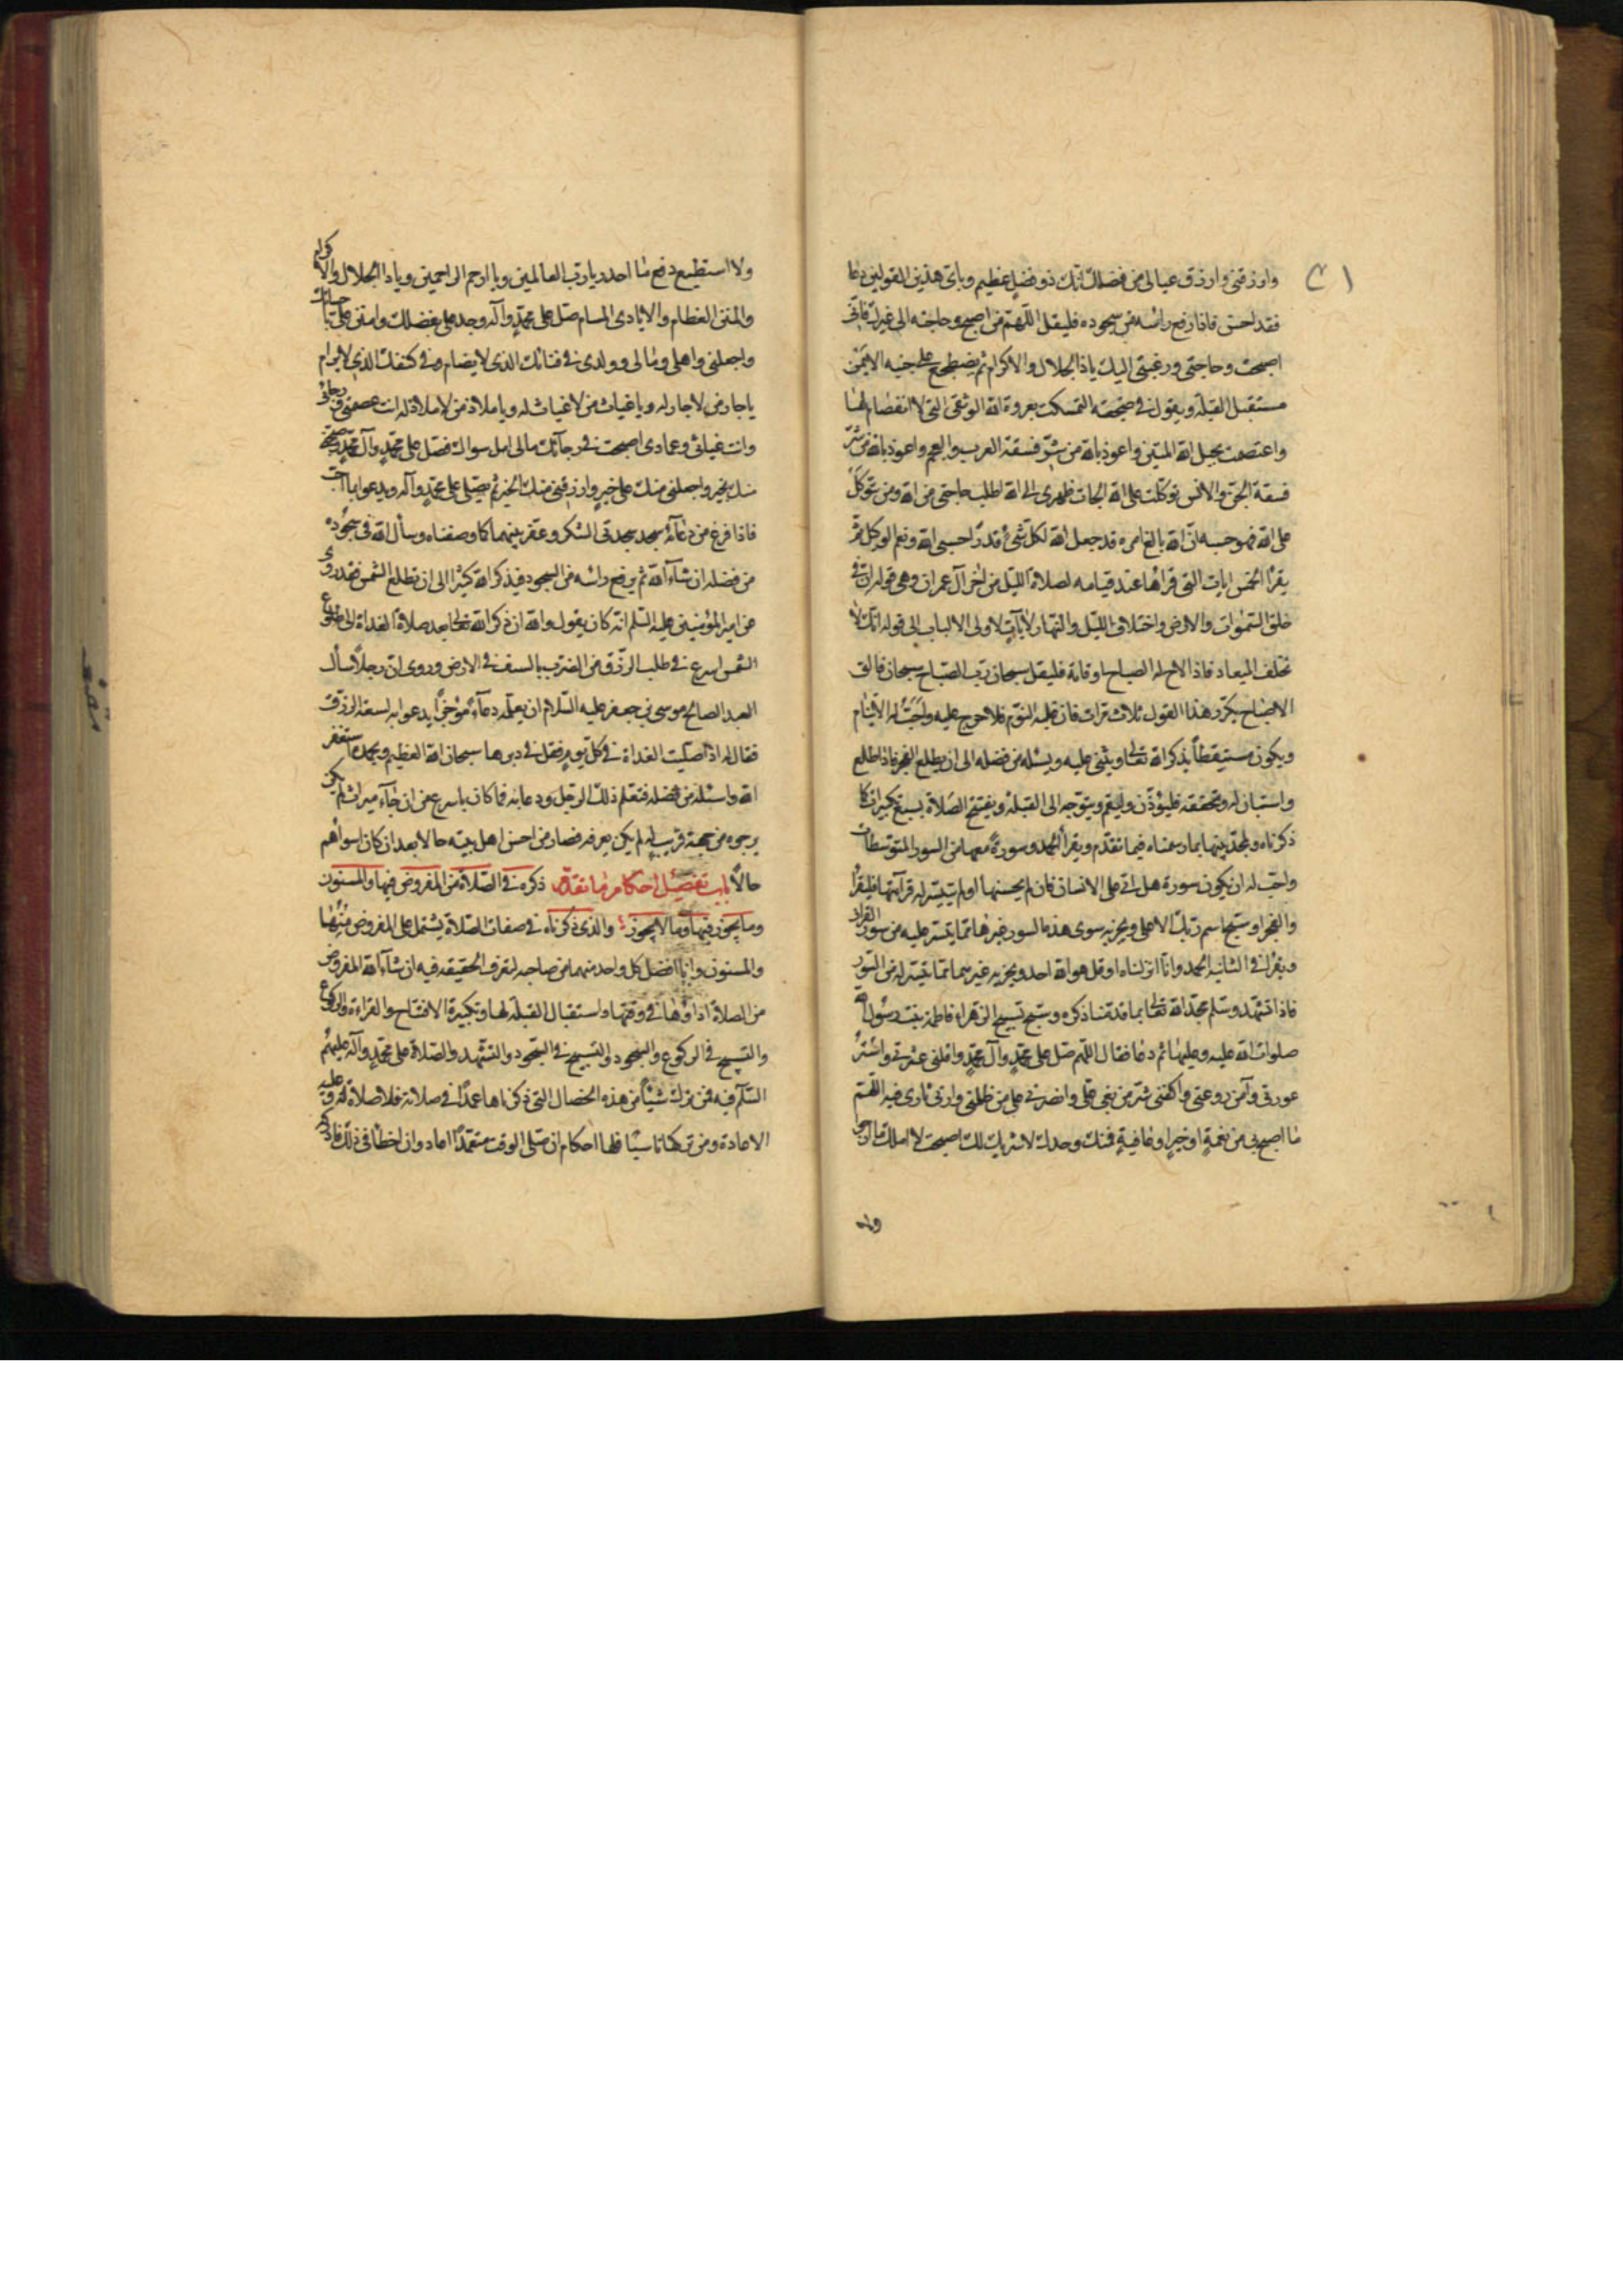 وارزقني وارزق عيالي من فضلك انك ذو فضل عظيم وباي هذين القولين دعا
فقد احسن فاذا رفع راسه من سجوده فليقل اللهم من اصبح وحاجته الى غيرك فاني
اصبحت وحاجتي ورغبتي اليك ياذا الجلال والاكرام ثم يضطجع على جنبه الايمن
مستقبل القبلة ويقول في ضجعته استمسكت بعروة الله الوثقى التي لا انفصام لها
واعتصمت بحبل الله المتين واعوذ بالله من شر فسقة العرب والعجم واعوذ بالله من شر
فسقة الجن والانس توكلت على الله الجات ظهري الى الله اطلب حاجتي من الله ومن يتوكل
على الله فهو حسبه ان الله بالغ امره قد جعل الله لكل شئ قدرا حسبي الله ونعم الوكيل ثم
يقرأ الخمس ايات التي قراها عند قيامه لصلاة الليل من اخر آل عمران وهي قوله ان في
خلق السموات والارض واختلاف الليل والنهار لآيات لاولى الالباب الى قوله انك لا
تخلف الميعاد فاذا لاح له الصباح او قاربه فليقل سبحان رب الصباح سبحان فالق
الاصباح يكرر هذا القول ثلاث مرات فان غلبه النوم فلا حرج عليه واحب له الا ينام
ويكون مستيقظا يذكر الله تعالى ويثني عليه ويسئله من فضله الى ان يطلع الفجر فاذا طلع
واستبان له وتحققه فليؤذن وليقم ويتوجه الى القبلة ويفتتح الصلاة بسبع تكبيرات كما
ذكرناه ويمجد بينها بما رسمناه فيما تقدم ويقرأ الحمد وسورة معها من السور المتوسطات
واحب له ان يكون سورة هل اتى على الانسان فان لم يحسنها او لم يتيسر له قرآتها فليقرأ
والفجر او سبح اسم ربك الاعلى ويجزيه سوى هذه السور غيرها مما يتيسر عليه من سور القرآن
ويقرأ في الثانيه الحمد وانا انزلناه او قل هو الله احد ويجزيه غيرهما مما تيسر له من السور
فاذا تشهد وسلم مجد الله تعالى بما قدمنا ذكره وسبح تسبيح الزهراء فاطمة بنت رسول الله
صلوات الله عليه وعليها ثم دعا فقال اللهم صل على محمد وآل محمد واقلني عثرتي واستر
عورتي وآمن روعتي واكفني شر من بغى علي وانصرني على من ظلمني وارني ثاري فيه اللهم
ما اصبح بي من نعمة او خير او عافية فمنك وحدك لا شريك لك اصبحت لا املك ما ارجو
ولا
ولا استطيع دفع ما احذر يا رب العالمين ويا ارحم الراحمين ويا ذا الجلال والاكرام
والمنن العظام والايادي الجسام صل على محمد وآله وجد علي بفضلك وامنن علي باحسانك
واجعلني واهلي ومالي وولدي في فنائك الذي لا يضام وفي كنفك الذي لا يرام
يا جار من لا جار له ويا غياث من لا غياث له ويا ملاذ من لا ملاذ له انت عصمتي ورجائي
وانت غياثي وعمادي اصبحت في رجائك مالي امل سواك فصل على محمد وآل محمد وصبحني
منك بخير واجعلني منك على خير وارزقني منك الخير ثم يصلي على محمد وآله ويدعو بما احب
فاذا فرغ من دعائه سجد سجدتي الشكر وعفر بينهما كما وصفناه وسأل الله في سجوده
من فضله ان شآء الله ثم يرفع راسه من السجود فيذكر الله كثيرا الى ان تطلع الشمس فقد روى
عن امير المؤمنين عليه السلم انه كان يقول والله ان ذكر الله تعالى بعد صلاة الغداة الى طلوع
الشمس اسرع في طلب الرزق من الضرب بالسيف في الارض وروى ان رجلا سأل
العبد الصالح موسى بن جعفر عليه السلام ان يعلمه دعآء موجزا يدعو به لسعة الرزق
فقال له اذا صليت الغداة في كل يوم فقل في دبرها سبحان الله العظيم وبحمده استغفر
الله واسئله من فضله فتعلم ذلك الرجل ودعا به فما كان باسرع من ان جآءه ميراث لم يكن
يرجوه من جهة قريب له لم يكن يعرفه فصار من احسن اهل بيته حالا بعد ان كان اسوأهم
حالا باب تفصيل احكام ما تقدم ذكره في الصلاة من المفروض فيها والمسنون
وما يجوز فيها وما لا يجوز والذي ذكرناه في صفات الصلاة يشتمل على المفروض منها
والمسنون وانا افصل كل واحد منهما من صاحبه لتعرف الحقيقه فيه ان شآء الله المفروض
من الصلاة اداؤها في وقتها واستقبال القبلة لها وتكبيرة الافتتاح والقراءة والركوع
والتسبيح في الركوع والسجود والتسبيح في السجود والتشهد والصلاة على محمد وآله عليهم
السلم فيه فمن ترك شيئا من هذه الخصال التي ذكرناها عمدا في صلاته فلا صلاة له وعليه
الاعادة ومن تركها ناسيا فلها احكام ان صلى الوقت متعمدا اعاد وان اخطأ في ذلك فادرك